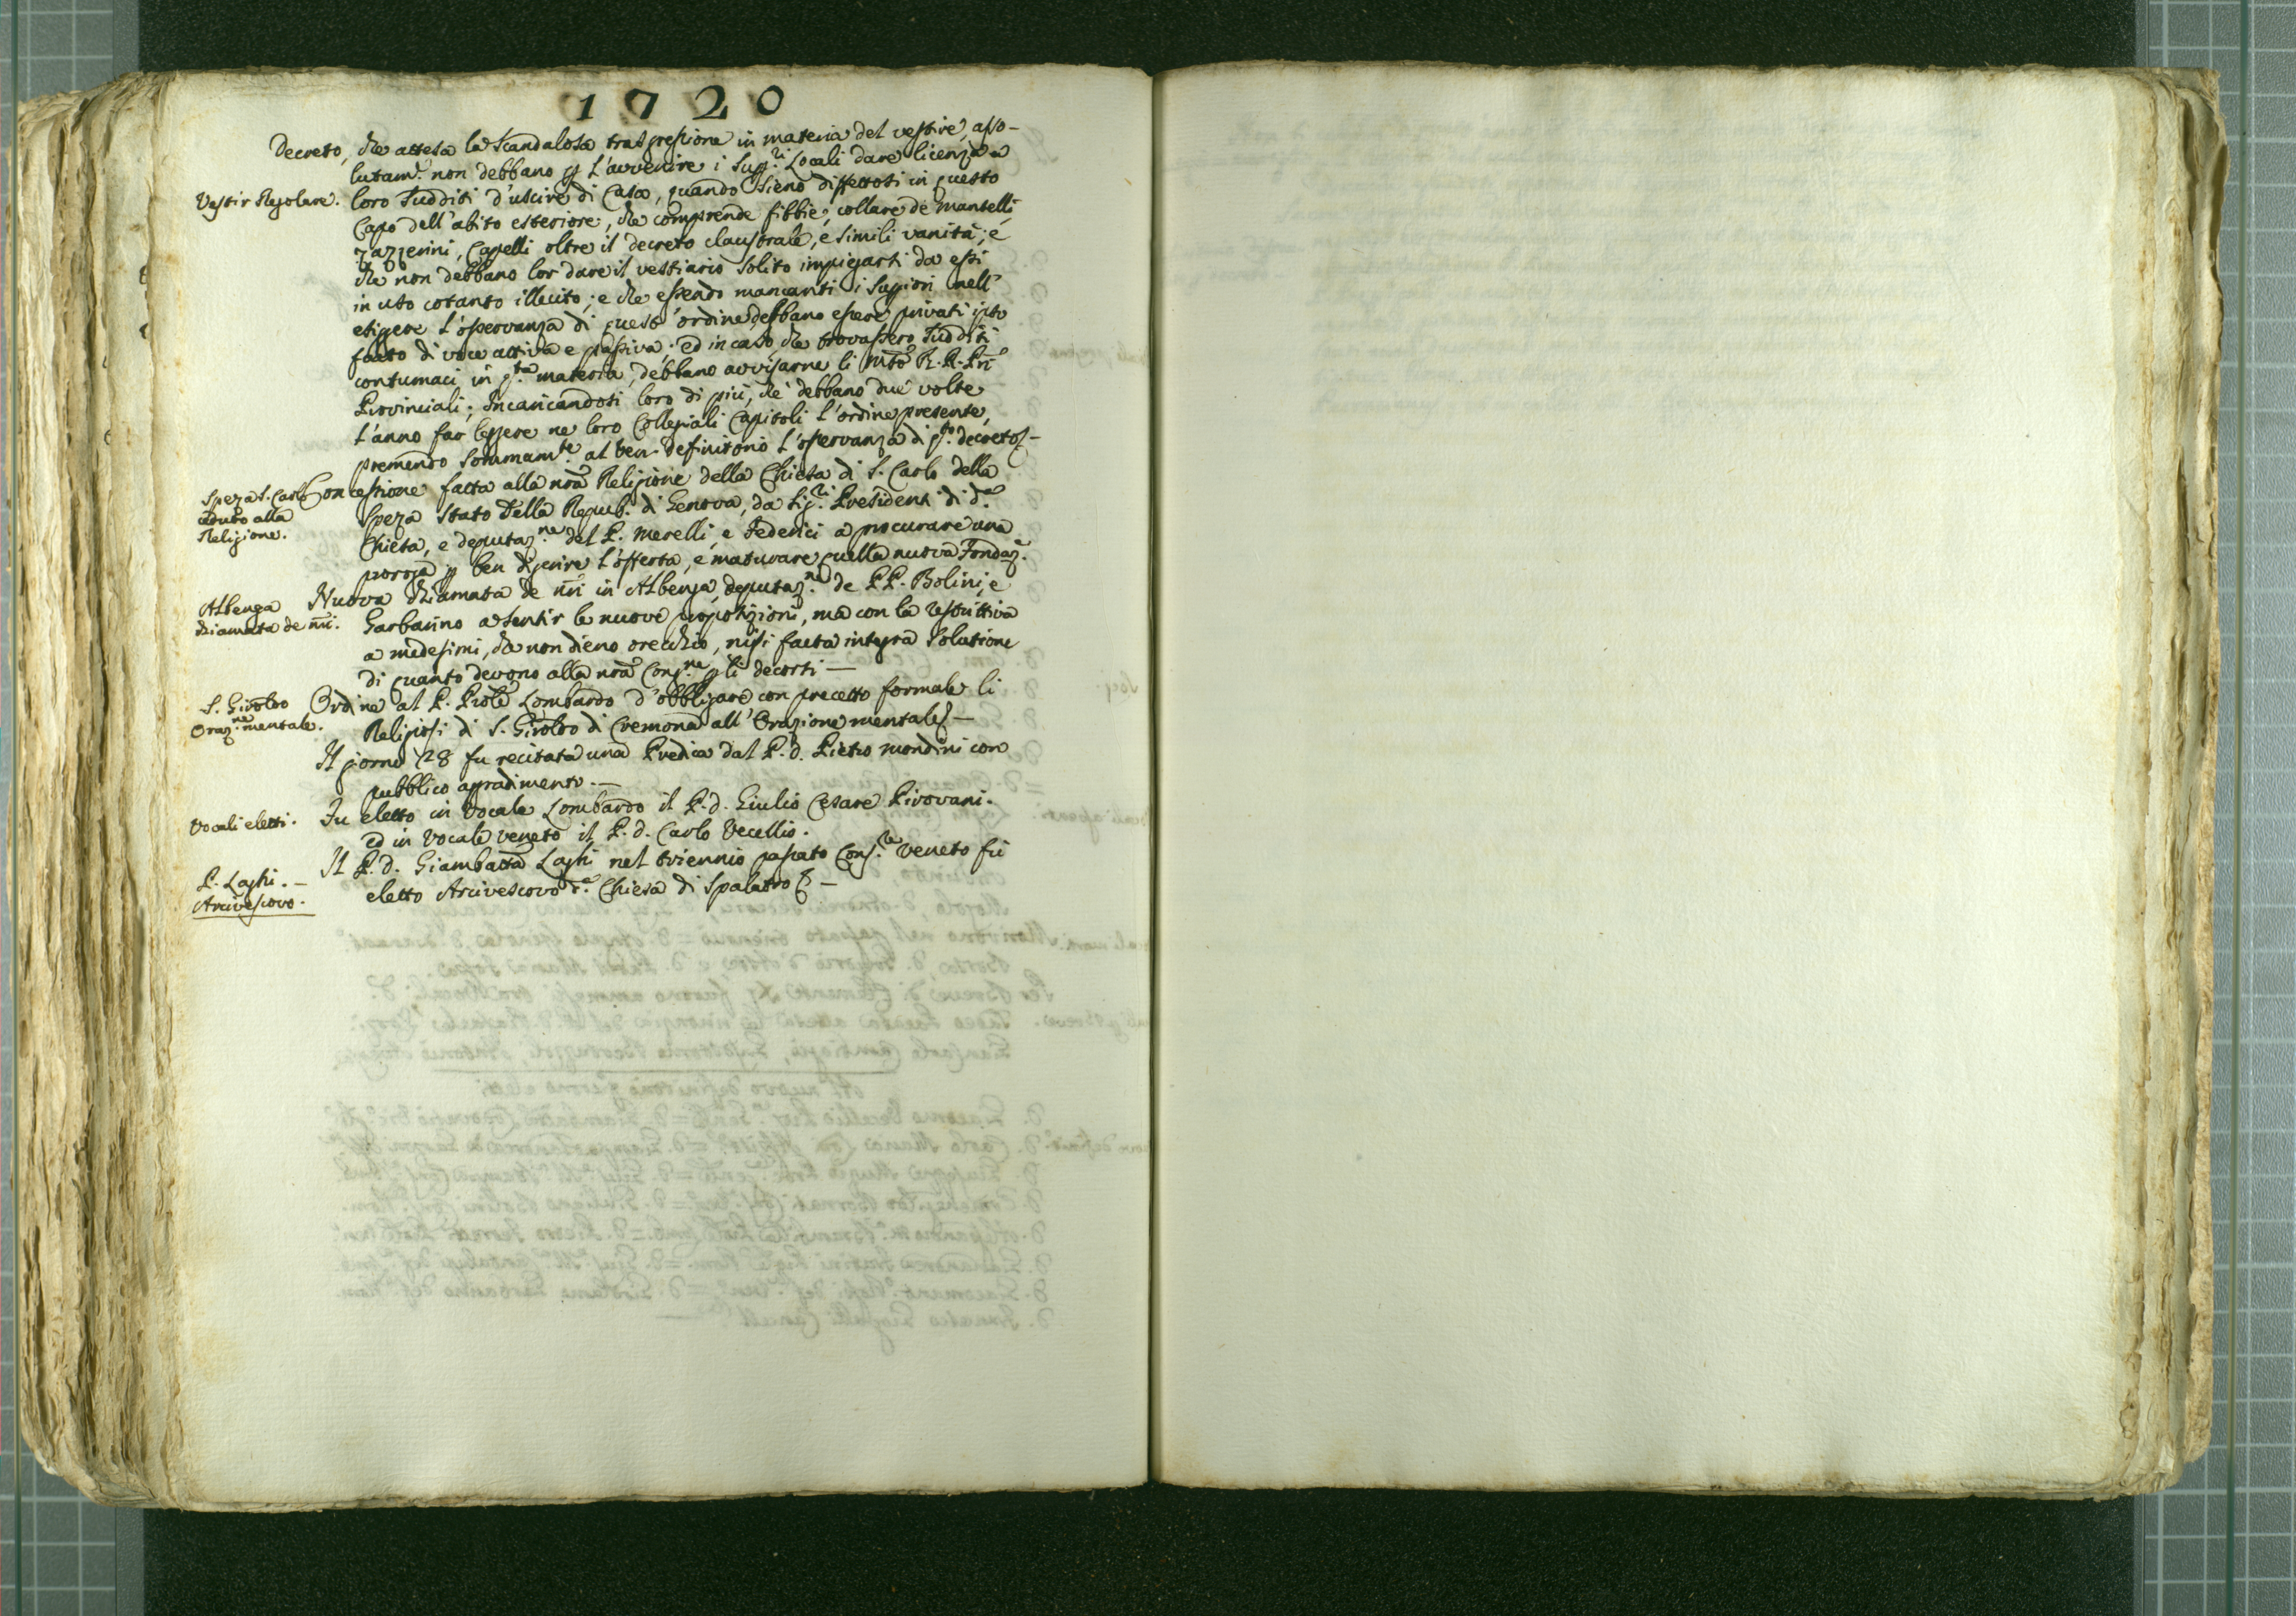 1720
Decreto, che attesa la scandalosa trasgressione in materia del vestire, asso-
lutam.e non debbano p l'avvenire i Supp.ri Locali dare licenza a
Vestir Regolare. loro sudditi d'uscire di Casa, quando sieno diffettosi in questo
Capo dell'abito esteriore, che comprende fibbie, collare de mantelli
zazzerini, Capelli oltre il decreto claustrale, e simili vanità; e
che non debbano lor dare il vestiario solito impiegarsi da essi
in uso cotanto illecito; e che essendo mancanti i Suppiori nell'
esigere l'osservanza di quest'ordine, debbano essere privati ipso
facto di voce attiva e passiva; ed in caso che trovassero sudditi
contumaci in q.ta materia, debbano avvisarne li Mto R. R. Pri
Provinciali; Incaricandosi loro di più, che debbano due volte
l'anno far leggere ne loro Collegiali Capitoli l'ordine presente,
premendo sommam.te al Ven. definitorio l'osservanza di q.to decreto
Speza S. Carlo Concessione fatta alla nra Religione della Chiesa di S. Carlo della
ceduto alla Speza Stato della Repub. di Genova, da Sig.ri Presidenti di d.a
Religione. Chiesa, e deputaz.ne del P. Merelli, e Federici a procurare una
proroga p ben digerire l'offerta, e maturare quella nuova Fondaz.e
Albenga Nuova chiamata de nri in Albenga, deputaz.ne de PP. Bolini, e
chiamata de nri. Garbarino a sentir le nuove proposizioni, ma con la restrittiva
a medesimi, che non dieno orecchio, nisi facta integra solutione
di quanto devono alla nra Cong.ne p li decorsi —
S. Girolmo Ordine al P. Prole Lombardo d'obbligare con precetto formale li
Oraz.ne mentale. Religiosi di S. Girolmo di Cremona all'Orazione mentale —
Il giorno 28 fu recitata una Predica dal P. d. Pietro Mondini con
pubblico agradimento. —
Vocali eletti. Fu eletto in Vocale Lombardo il P. d. Giulio Cesare Pirovani.
ed in Vocale veneto il P. d. Carlo Vecellio.
P. Laghi. — Il P. d. Giambatta Laghi nel triennio passato Cons.re veneto fu
Arcivescovo. eletto Arcivescovo d.a Chiesa di Spalatro —